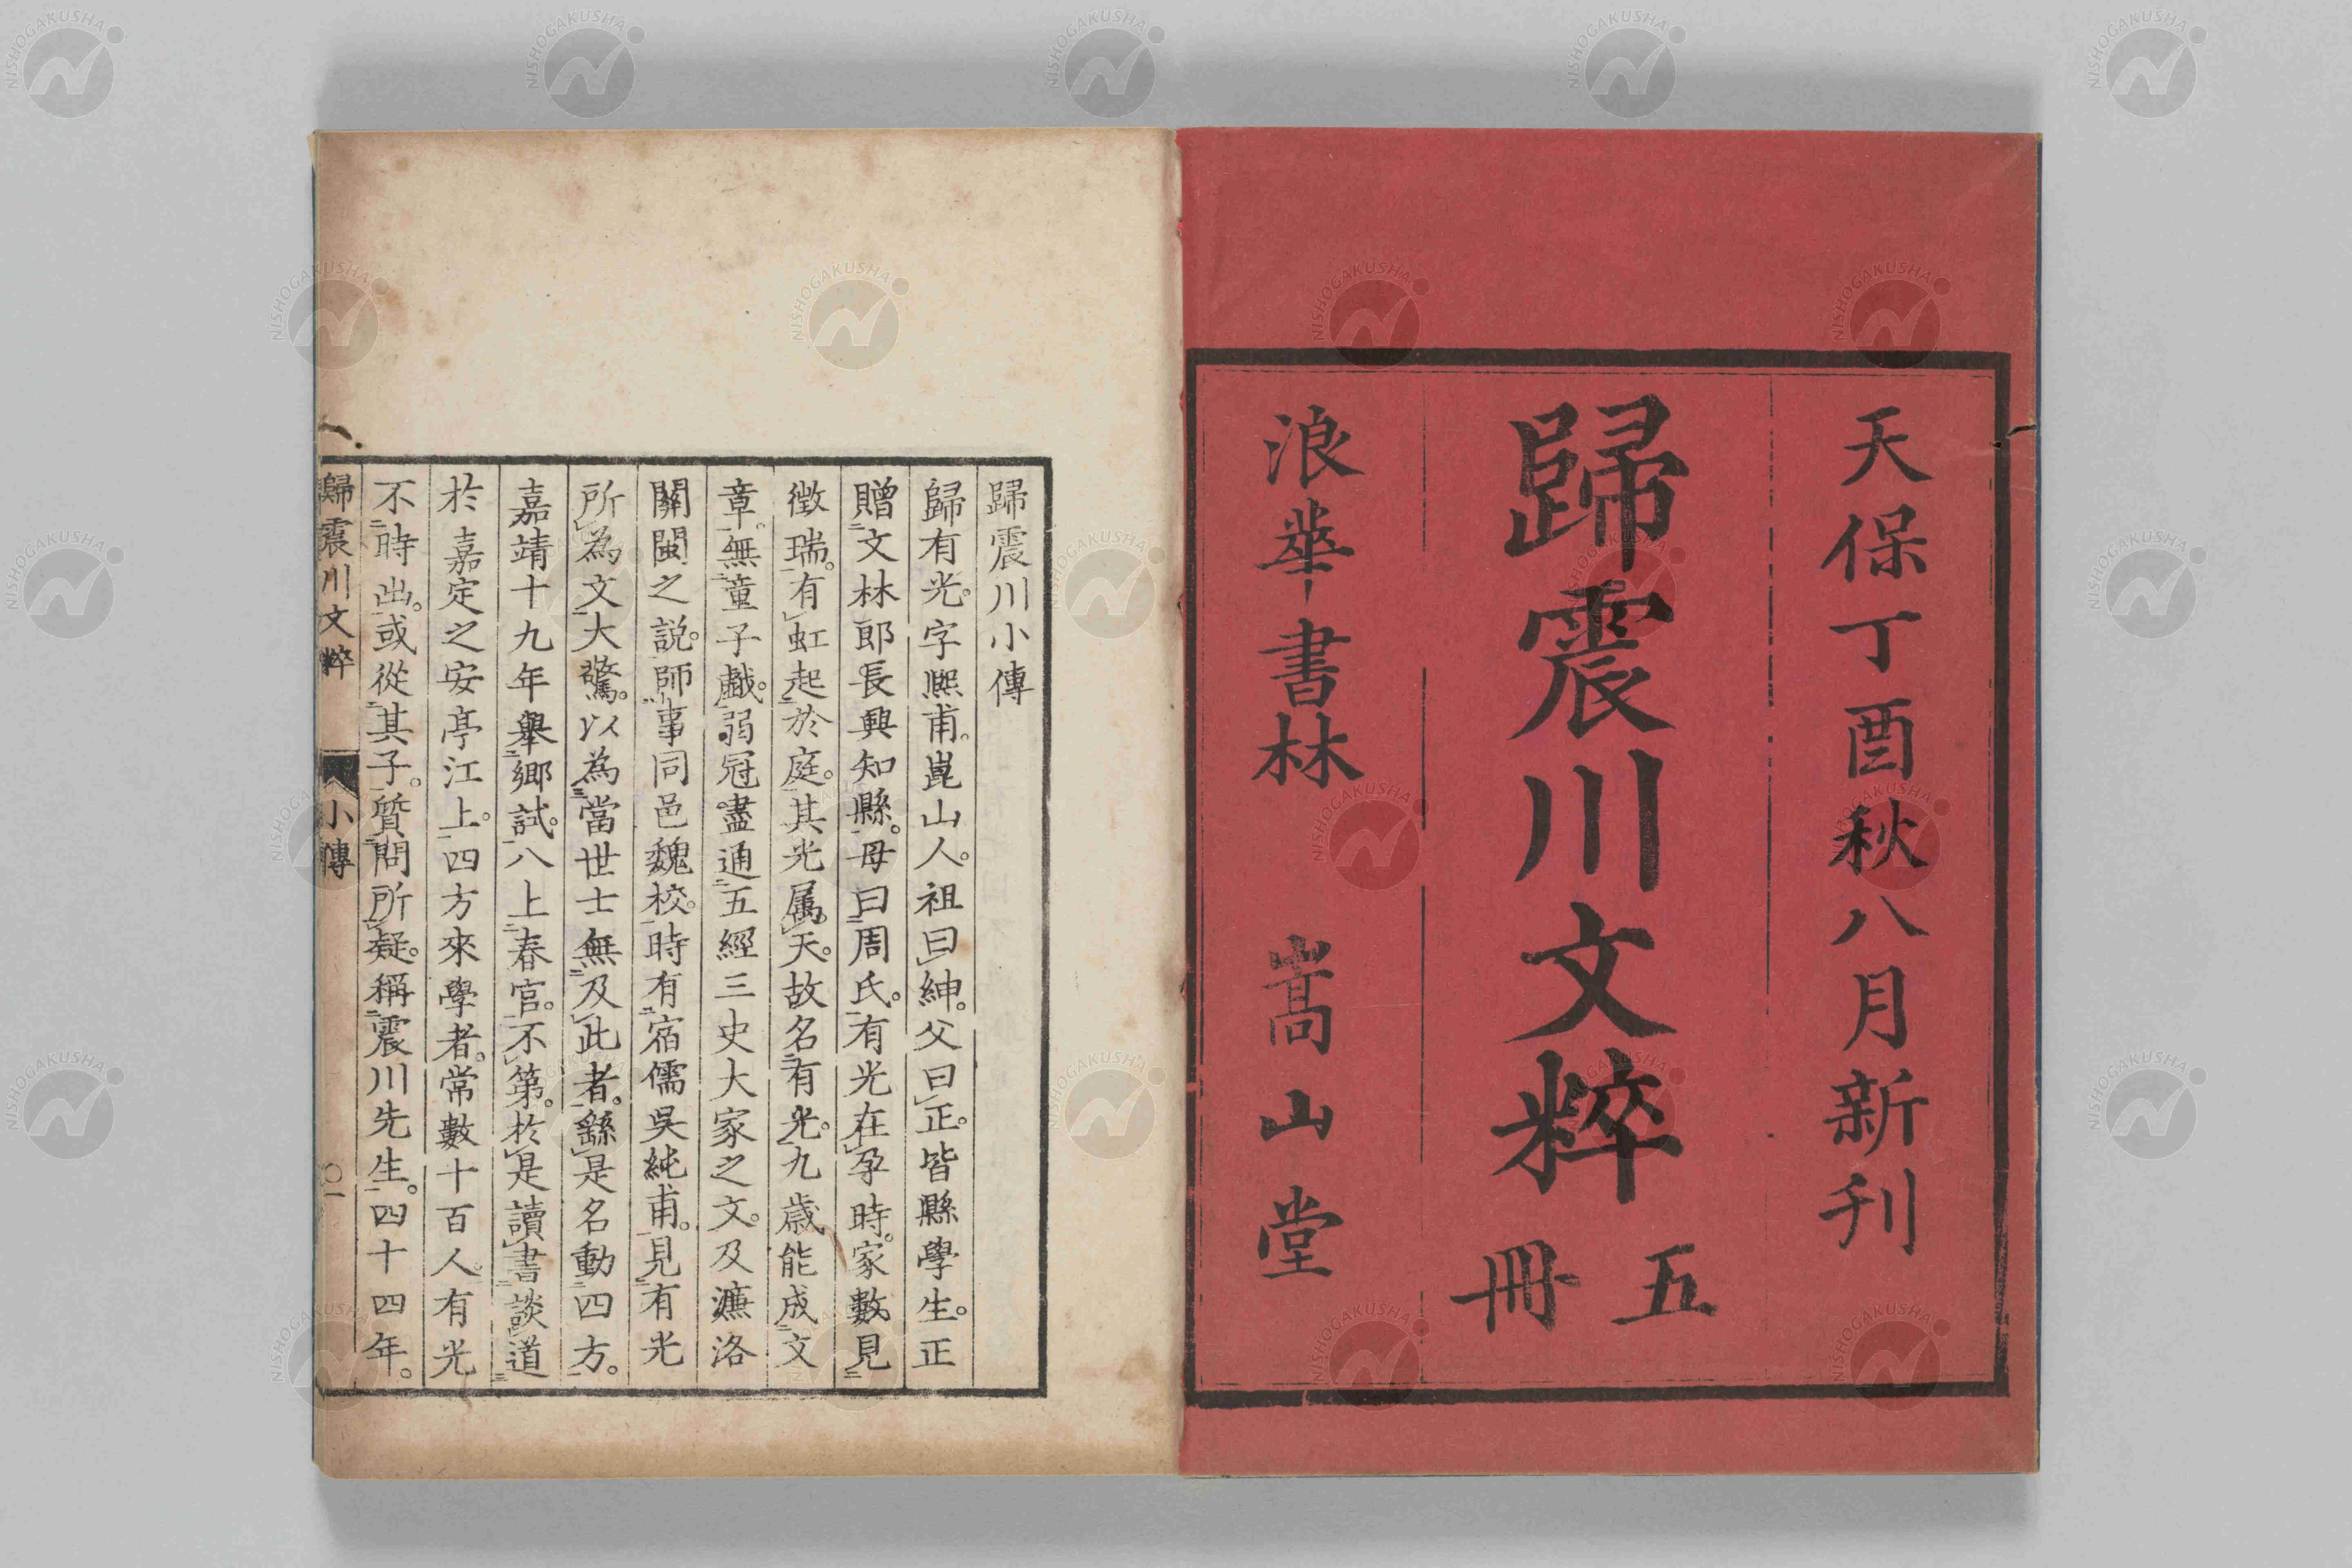 天保丁酉秋八月新刊
歸震川文粹
五冊
浪華書林 嵩山堂
歸震川小傳
歸有光。字熙甫。崑山人。祖曰紳。父曰正。皆縣學生。正
贈文林郎長興知縣。母曰周氏。有光在孕時。家數見
徵瑞。有虹起於庭。其光属天。故名有光。九歲能成文
章。無童子戲。弱冠盡通五經三史大家之文。及濂洛
關閩之說。師事同邑魏校。時有宿儒吳純甫。見有光
所為文大驚。以為當世士無及此者。繇是名動四方。
嘉靖十九年舉鄉試。八上春官。不第。於是讀書談道
於嘉定之安亭江上。四方來學者。常數十百人。有光
不時出。或從其子。質問所疑。稱震川先生。四十四年。
歸震川文粹 小傳 〇一
NISHOGAKUSHA